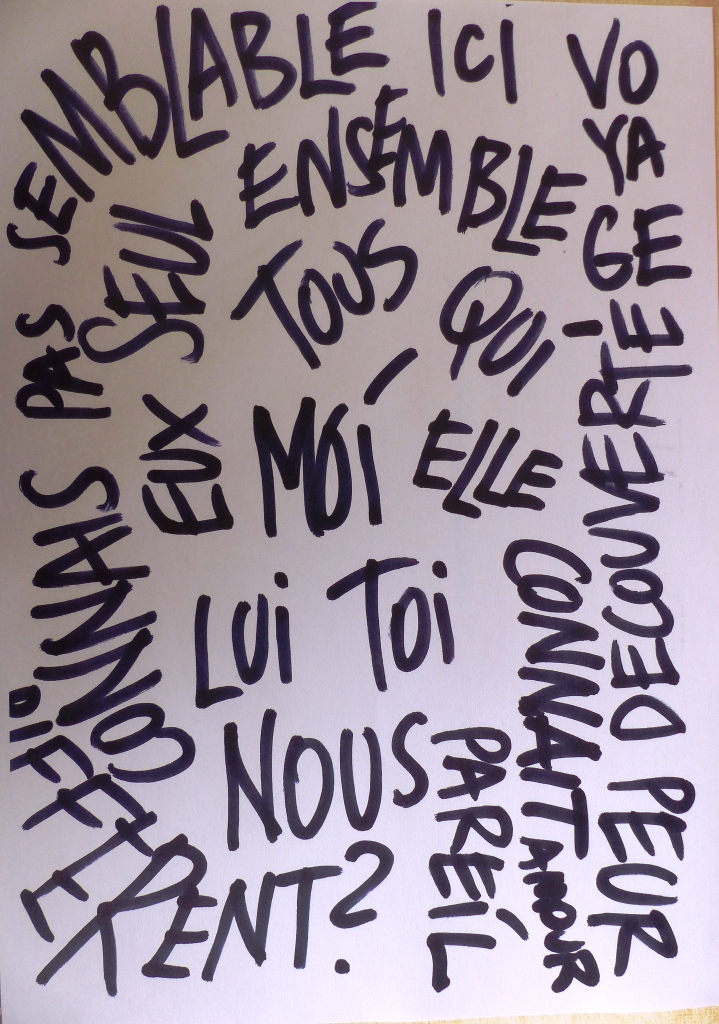 SEMBLABLE ICI
VO
YA
GE
ENSEMBLE
SEUL
TOUS
QUI
PAS
EUX
MOI
ELLE
DECOUVERTÉ
CONNAIS
LUI TOI
CONNAIT
NOUS
PAREIL
AMOUR
PEUR
DIFFERENT?